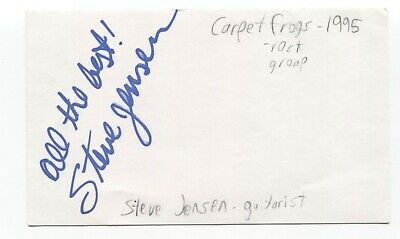 all the best!
Steve Jensen
Carpet frogs - 1995
- rock
group
Steve Jensen - guitarist